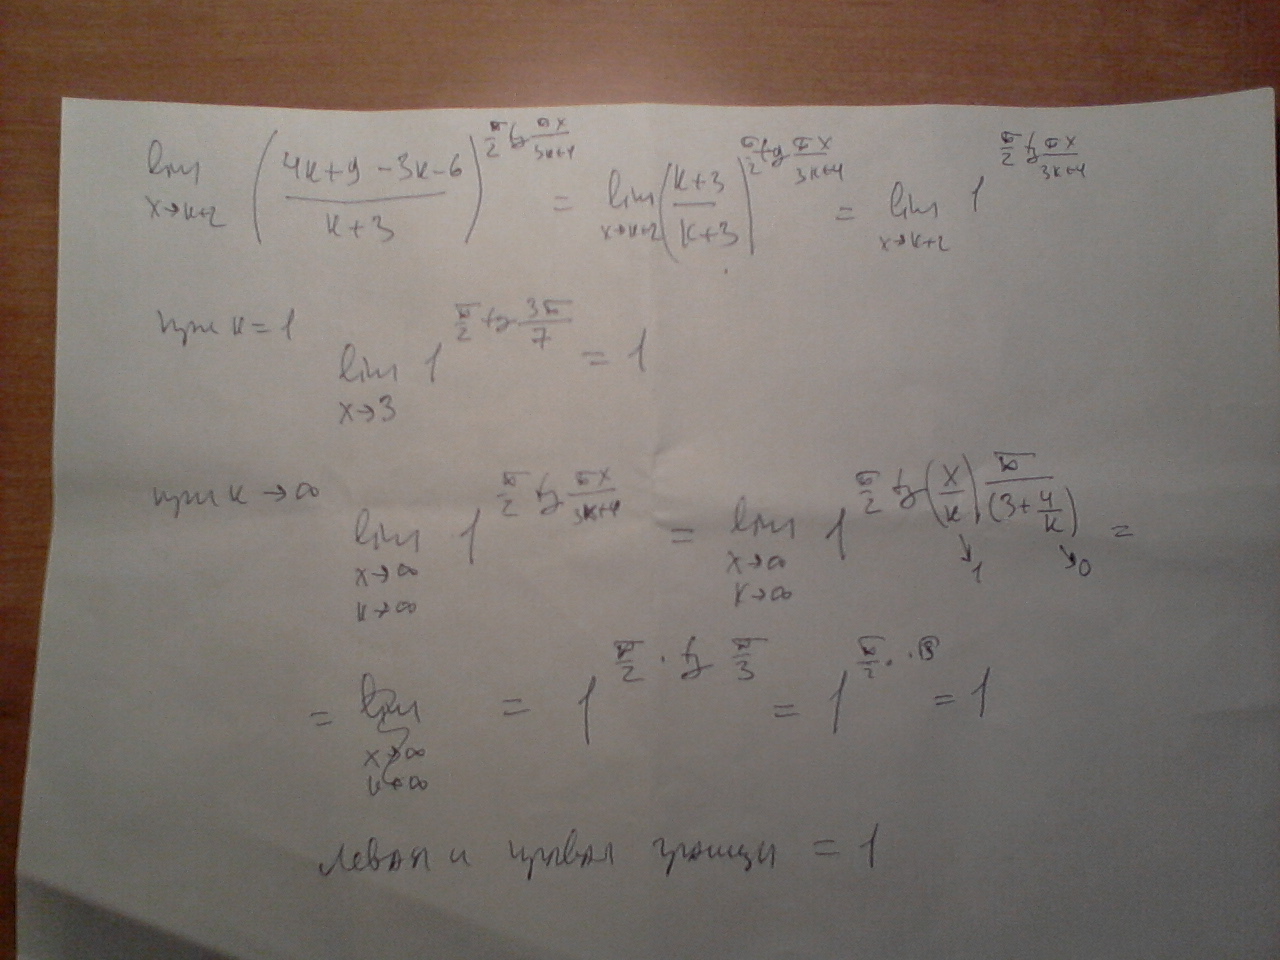 lim x→к+2 ((4к+9-3к-6)/(к+3))^(π/2 tg πx/(3к+4)) = lim x→к+2 ((к+3)/(к+3))^(π/2 tg πx/(3к+4)) = lim x→к+2 1^(π/2 tg πx/(3к+4))
при к=1
lim x→3 1^(π/2 tg 3π/7) = 1
при к→∞
lim x→∞ к→∞ 1^(π/2 tg πx/(3к+4)) = lim x→∞ к→∞ 1^(π/2 tg (x/к) π/(3+4/к)) =
→1 →0
= lim x→∞ к→∞ = 1^(π/2 · tg π/3) = 1^(π/2 ·) = 1
левая и правая границы = 1